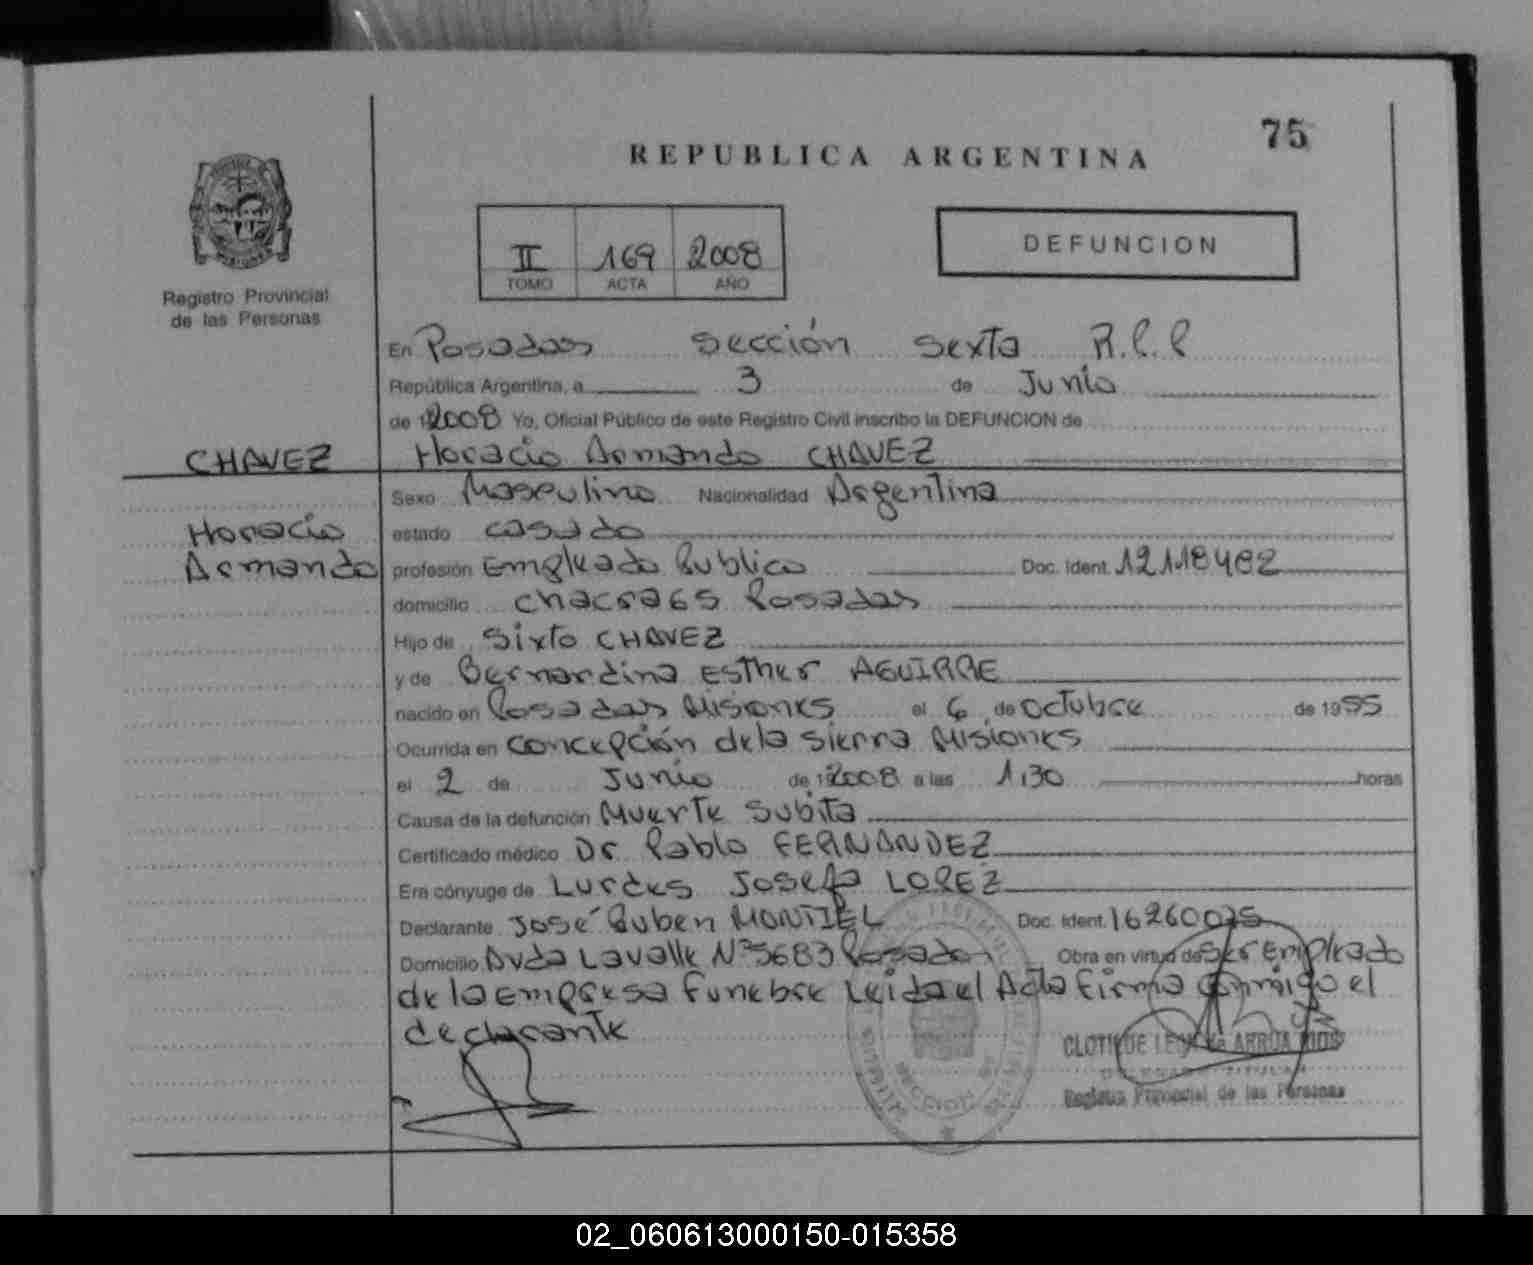 75
REPUBLICA ARGENTINA
II 169 2008
TOMO ACTA AÑO
DEFUNCION
Registro Provincial
de las Personas
En Posadas Sección Sexta R.P.P
República Argentina, a 3 de Junio
de 2008 Yo, Oficial Público de este Registro Civil inscribo la DEFUNCION de
CHAVEZ Horacio Armando CHAVEZ
Sexo Masculino Nacionalidad Argentina
Horacio estado casado
Armando profesión Empleado Publico Doc. Ident. 12118482
domicilio chacra 65 Posadas
Hijo de Sixto CHAVEZ
y de Bernardina Esther AGUIRRE
nacido en Posadas Misiones el 6 de octubre de 1955
Ocurrida en Concepción de la Sierra Misiones
el 2 de Junio de 2008 a las 1,30 horas
Causa de la defunción Muerte Subita
Certificado médico Dr Pablo FERNANDEZ
Era cónyuge de Lurdes Josefa LOPEZ
Declarante José Ruben MONTIEL Doc. Ident. 16260025
Domicilio Avda Lavalle Nº 5683 Posadas Obra en virtud de Ser Empleado
de la Empresa Funebre Leida el Acta Firma Conmigo el
declarante
ARRUA RIOS
DELEGADA TITULAR
Registro Provincial de las Personas
02_060613000150-015358